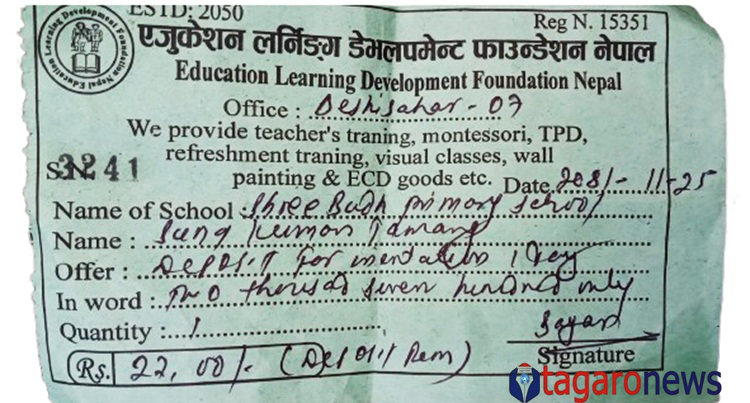 ESTD: 2050
Reg N. 15351
Education Learning Development Foundation Nepal
एजुकेशन लर्निङ्ग डेभलपमेन्ट फाउन्डेशन नेपाल
Education Learning Development Foundation Nepal
Office : -07
We provide teacher's traning, montessori, TPD,
refreshment traning, visual classes, wall
painting & ECD goods etc.
S.N. 3241
Date 2081-11-25
Name of School : Shree Budh primary school
Name : Tamang
Offer : Deposit for
In word : Two thousad seven hundred only
Quantity : 1
Signature
Rs. 22,00/- (Deposit
tagaronews